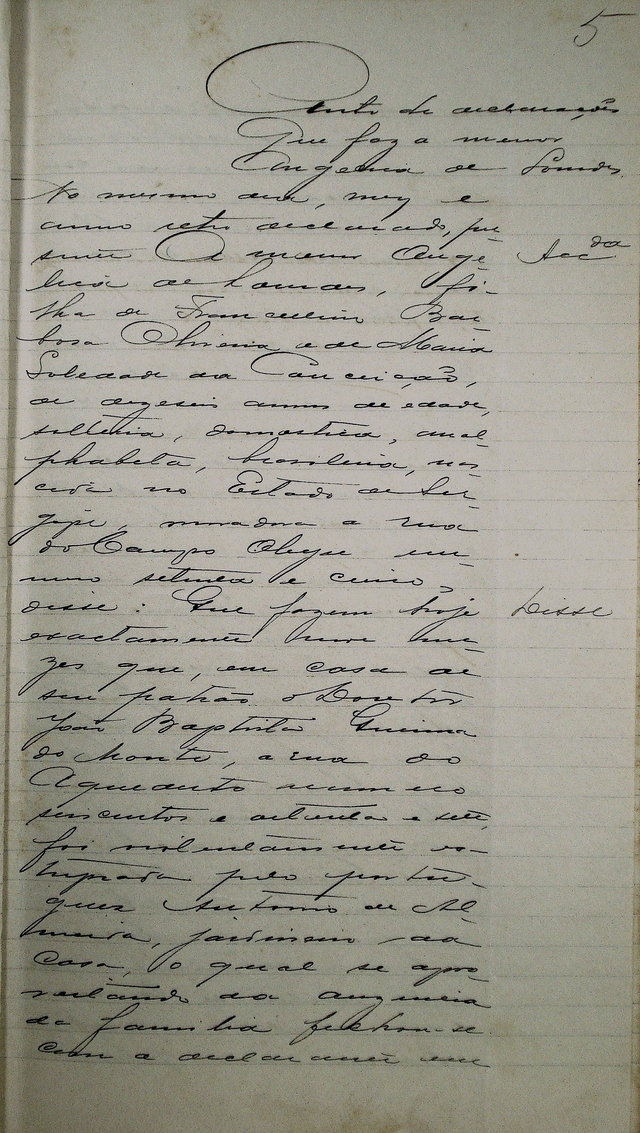 5
Auto de declarações
Que faz a menor
Angelica de Lourdes
No mesmo dia, mez e
anno retro declarado, pre
sente a menor Ange-
lica de Lourdes, fi-
lha de Francelino Bar-
bosa Oliveira e de Maria
Soledade da Conceição,
de dezeseis annos de edade,
solteira, domestica, anal-
phabeta, brasileira, nas-
cida no Estado de Ser-
gipe, moradora a rua
do Campo Alegre nu-
mero setenta e cinco,
disse: Que fazem hoje
Disse
exactamente nove me-
zes que, em casa de
seu patrão o Doutor
João Baptista
do Monte, a rua do
Aqueducto numero
seiscentos e oitenta e sete,
foi violentamente es-
tuprada pelo portu-
guez Antonio de Al-
meida, jardineiro da
casa, o qual se apro-
veitando da auzencia
da familia fechou-se
com a declarante em